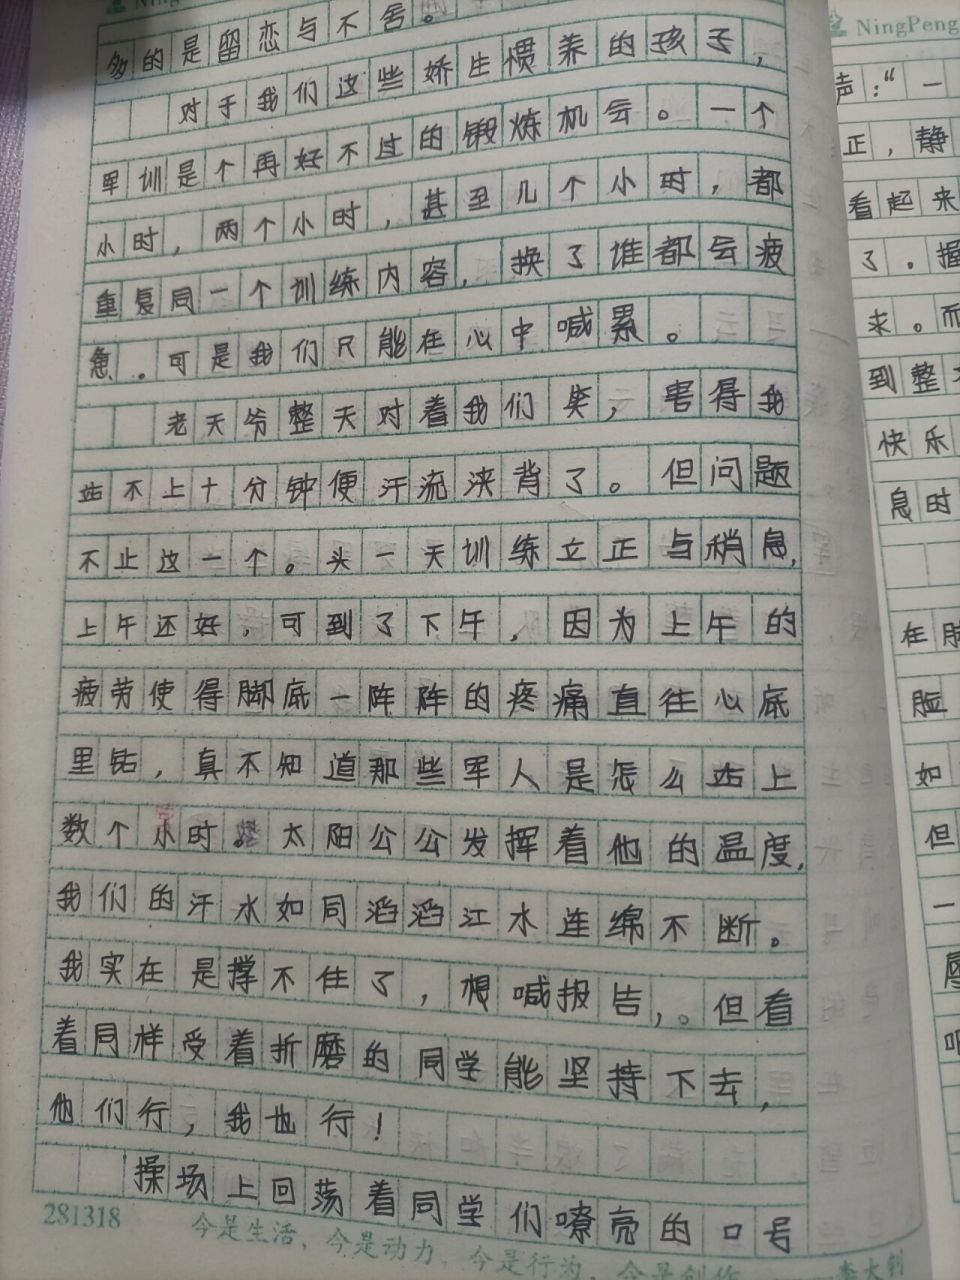 多的是留恋与不舍。
对于我们这些娇生惯养的孩子，
军训是个再好不过的锻炼机会。一个
小时，两个小时，甚至几个小时，都
重复同一个训练内容，换了谁都会疲
惫。可是我们只能在心中喊累。
老天爷整天对着我们笑，害得我
站不上十分钟便汗流浃背了。但问题
不止这一个。头一天训练立正与稍息，
上午还好，可到了下午，因为上午的
疲劳使得脚底一阵阵的疼痛直往心底
里钻，真不知道那些军人是怎么站上
数个小时。太阳公公发挥着他的温度，
我们的汗水如同滔滔江水连绵不断。
我实在是撑不住了，想喊报告，。但看
着同样受着折磨的同学能坚持下去，
他们行，我也行！
操场上回荡着同学们嘹亮的口号
281318
今是生活，今是动力，今是行为，今是创作
李大钊
NingPeng
声：“一
正，静
看起来
了。握
求。而
到整
快乐
息时
在脚
脸
如
但
一